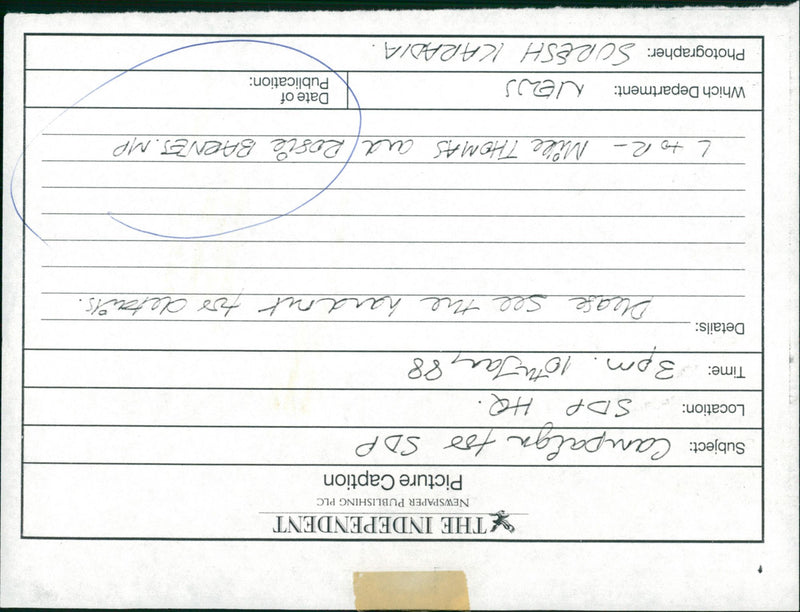 THE INDEPENDENT
NEWSPAPER PUBLISHING PLC
Picture Caption
Subject: Campaign for SDP
Location: SDP HQ.
Time: 3pm. 10th Jan, 88
Details:
Please see the handout for details.
L to R - Mike THOMAS and Rosie BARNES. MP
Which Department: NEWS
Date of Publication:
Photographer: SURESH KARADIA.